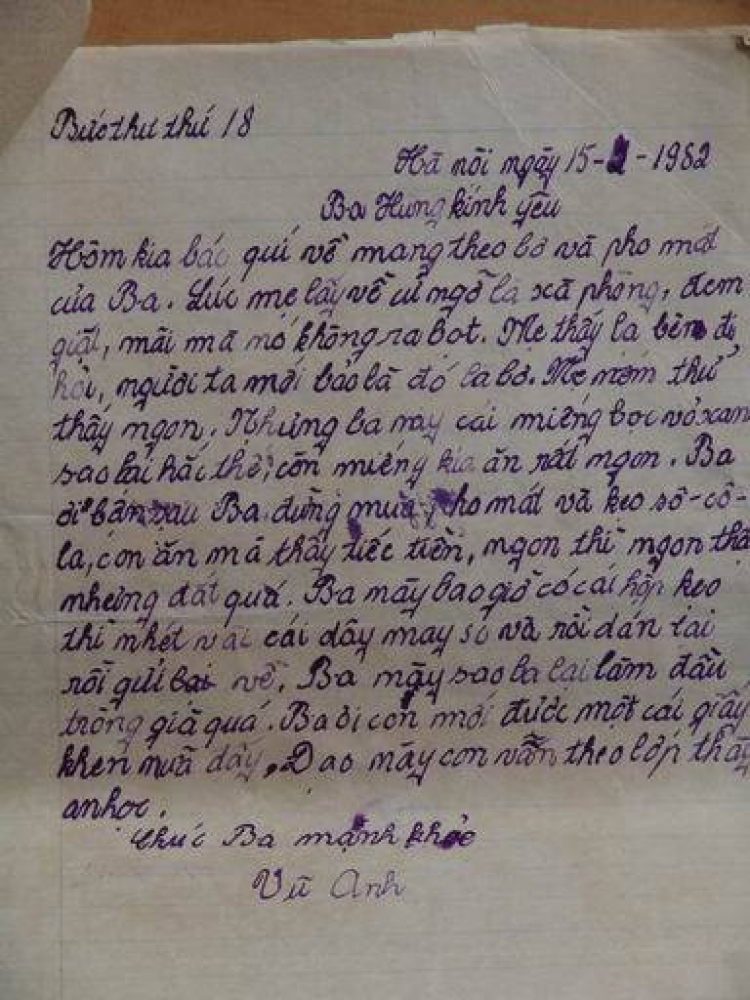 Bức thư thứ 18
Hà nội ngày 15- -1982
Ba Hưng kính yêu
Hôm kia bác quí về mang theo bơ và pho mát
của Ba. Lúc mẹ lấy về cứ ngỡ là xà phòng, đem
giặt, mãi mà nó không ra bọt. Mẹ thấy lạ bèn đi
hỏi, người ta mới bảo là đó la bơ. Mẹ nếm thử
thấy ngon. Nhưng ba này cái miếng bọc vỏ xan
sao lại hắc thế, còn miếng kia ăn rất ngon. Ba
đi bán sau Ba đừng mua pho mát và kẹo sô-cô-
la, con ăn mà thấy tiếc tiền, ngon thì ngon thậ
nhưng đắt quá. Ba này bao giờ có cái hộp kẹo
thì nhét vài cái dây may so và rồi dán lại
rồi gửi về. Ba này sao ba lại làm đầu
trông già quá. Ba ơi con mới được một cái giấy
khen nữa đấy. Dạo này con vẫn theo lớp thầy
anh học.
Chúc Ba mạnh khỏe
Vũ Anh